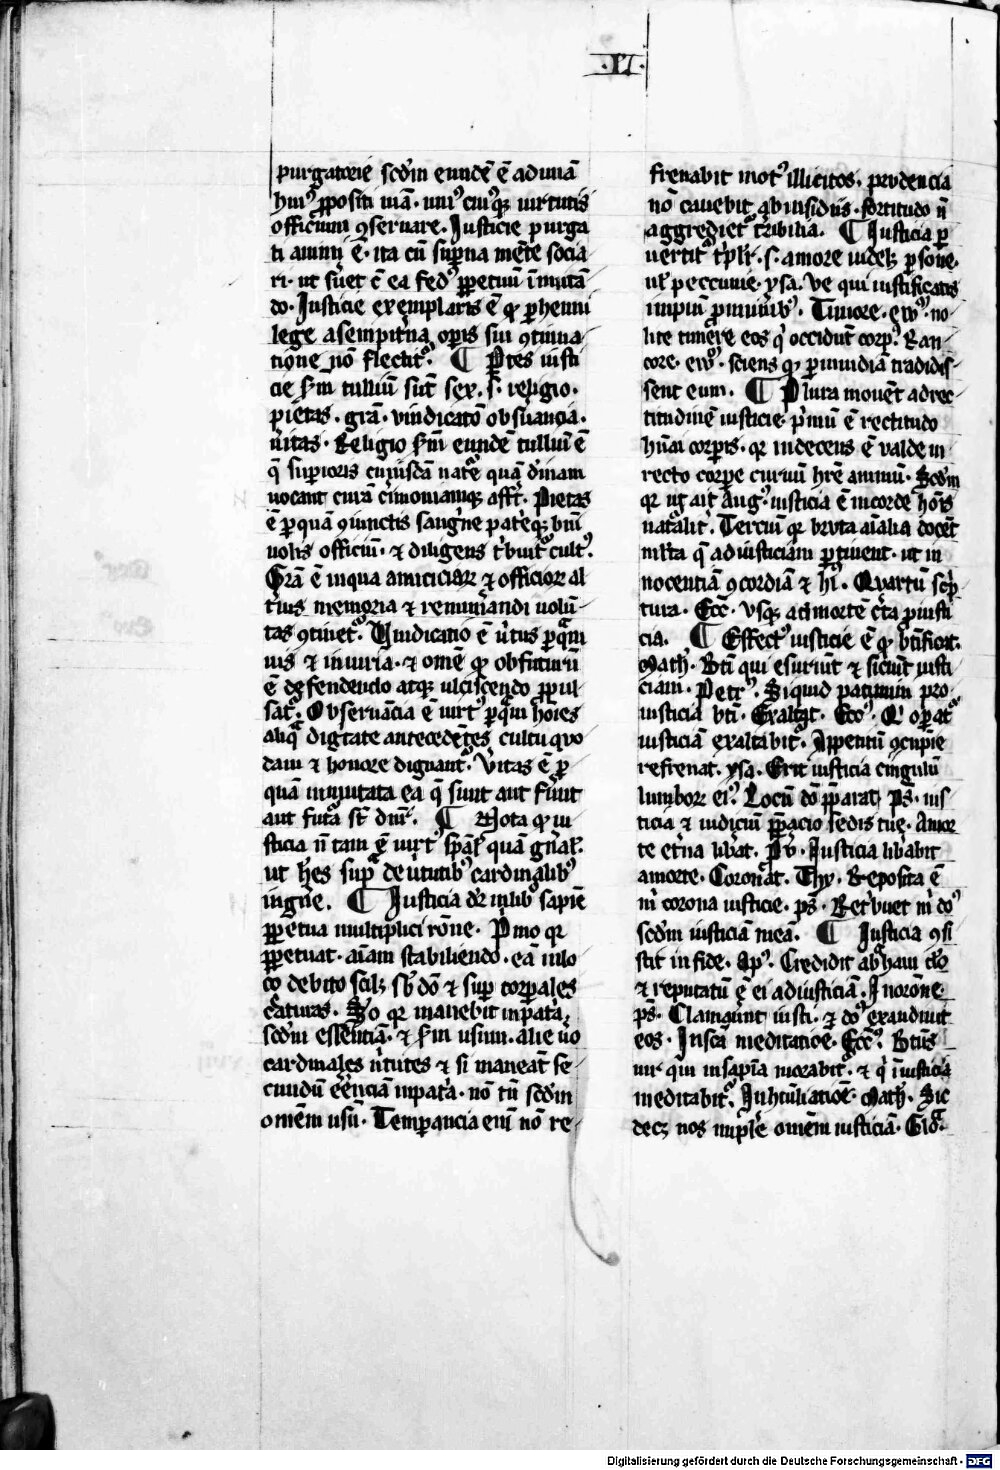 ·VI·
purgatorie scd'm eundē ē ad unā
hui9 ꝓpositi uiā · uni9 cuiꝰqꝫ uirtutis
officium ꝯseruare · Justicie purga
ti animi ē · ita cū supna mēte socia
ri · ut
do · Justicie exemplaris ē qđ phenni
lege a sempitna opis sui ꝯtinua
tione nō flectit᷑ · ¶ Ptes iusti
cie scd'm tulliū sūt sex · s · religio ·
pietas · grā · vindicatō obsuancia ·
ūitas · Religio scd'm eundē tulliū ē
q̄ supioris cuiusdā nate quā diuinam
uocant curā cimoniamqꝫ affert · Pietas
ē p quā ꝯiunctis sanguīe patieqꝫ
uolis officiū · ⁊ diligens tbuit᷑ cult9 ·
Grā ē in qua amiciciaꝝ ⁊ officioꝝ al
tius memoria ⁊ remunandi uolū
tas ꝯtinet᷑ · Vindicatio ē uirtus p quam
uis ⁊ iniuria · ⁊ omē qđ obfuturū
ē defendendo atqꝫ ulciscendo ꝓpul
sat᷑ · Obseruācia ē uirt9 p quā hoies
aliq̄ dignitate antecedētes cultu quo
dam ⁊ honore dignant᷑ · Vitas ē p
quā inmutata ea q̄ sunt aut fūnt
aut futa · ¶ Nota qđ iu
sticia nō tam ē uirt9 spāl' quā gnal' ·
ut hēs supra de uirtutibꝰ cardinalibꝰ
in gnē · ¶ Justicia dr in libo sapiē
ꝓpetua multiplici rōne · Pmo qꝛ
ꝓpetuat · aiam stabiliendo · eā in lo
co debito scilꝫ sb dō ⁊ sup corpales
caturas · So qꝛ manebit in patia ·
scd'm essentiā · ⁊ scd'm usum · alie uo
cardinales uirtutes ⁊ si maneāt se
cundū eēnciam in patia · nō tn̄ scd'm
omēm usū · Temperancia eni nō re
frenabit mot9 illicitos · prudencia
nō cauebit ab insidiis · fortitudo nō
aggrediet᷑ tribilia · ¶ Justicia p
uertit᷑ tplr · s · amore uidelꝫ psone ·
ul' peccunie · ysa · Ve qui iustificatis
impiū p muneribꝰ · Timore · · no
lite timere eos qui occidūt corp9 · Ran
core · · sciens qđ p inuidiā tradidis
sent eum · ¶ Plura mouēt ad rec
titudinē iusticie · pmū ē rectitudo
hūani corpis · qꝛ indecens ē valde in
recto corpe curuū hrē animū · Scd'm
qꝛ ut ait Aug9 · iusticia ē in corde hois
natalit · Terciū qꝛ bruta aīalia docēt
mlta q̄ ad iusticiam ptinent · ut in
nocentiā ꝯcordiā ⁊ hi · Quartū scp
tura · Ecc' · Vsqꝫ ad mortē cta p iusti
cia · ¶ Effect9 iusticie ē qđ btificat ·
Math · Bti qui esuriūt ⁊ siciūt iusti
ciam · Petr9 · Si quid patimini pro
iusticia bti · Exaltat · Ecc9 · Qui opat᷑
iusticiā exaltabit᷑ · Appetitū ꝯcupie
refrenat · ysa · Erit iusticia cingulū
lumboꝝ ei9 · Locū dō ꝓparat · Ps · ius
ticia ⁊ iudiciū ꝓpacio sedis tue · A mor
te etna libat · Pū · Justicia libabit
a morte · Coronat · Thy · Reposita ē
m' corona iusticie · ps · Retbuet m' do9
scd'm iusticiā meā · ¶ Justicia ꝯsi
stit in fide · Ap9 · Credidit abham do
⁊ reputatū ē ei ad iusticiā · In orōne
ps · Clamaunt iusti · ⁊ do9 exaudiuit
eos · In sca meditacioe · Ecc9 · Btus
uir qui in sapia morabit᷑ · ⁊ qui in iusticia
meditabit᷑ · In hūiliatione · Math · Sic
decꝫ nos imple omēm iusticiā · Glo ·
Digitalisierung gefördert durch die Deutsche Forschungsgemeinschaft · DFG